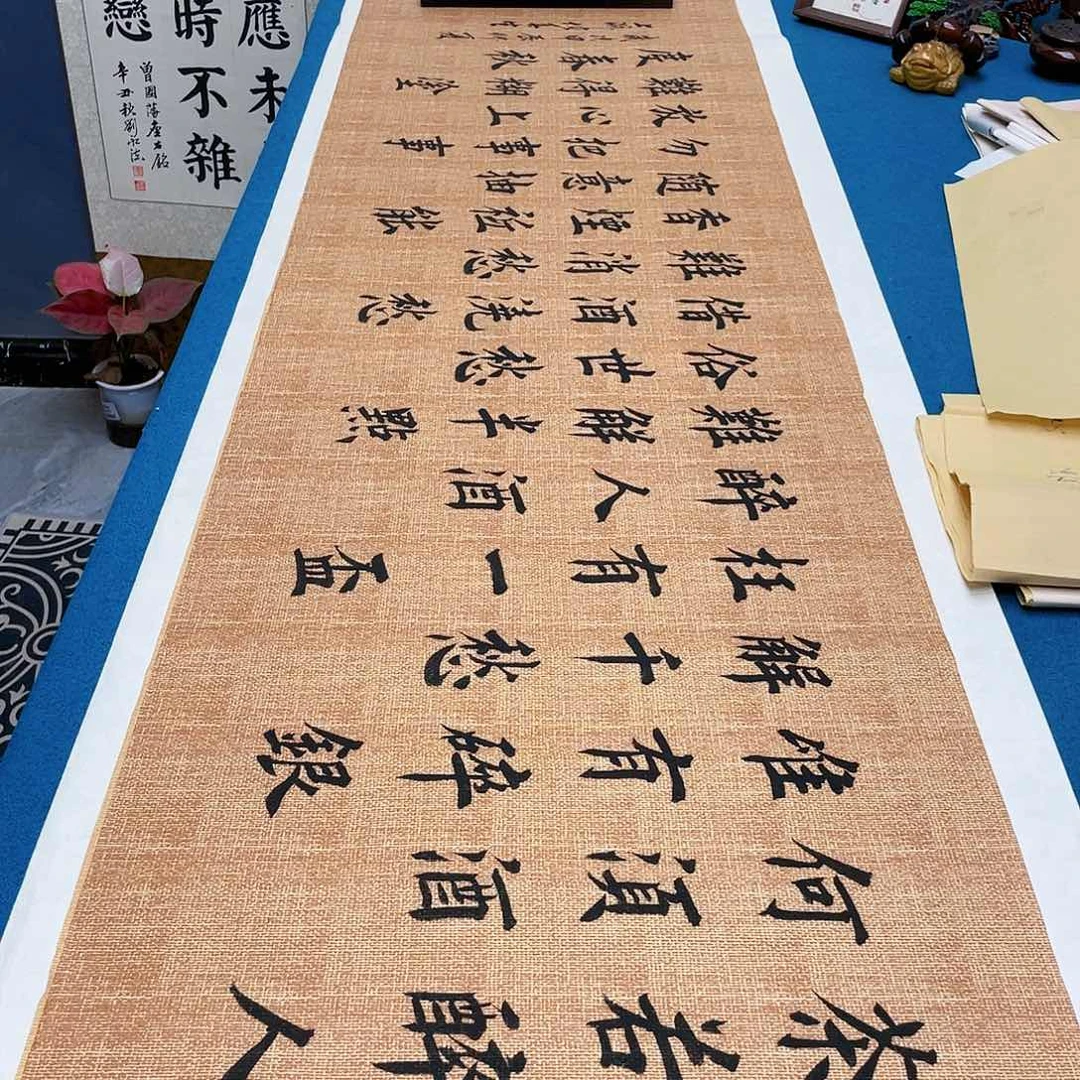 茶若醉人
何須酒
惟有碎銀
解千愁
枉有一盃
醉人酒
難解半點
俗世愁
借酒澆愁
難消愁
香煙
隨意抽
勿把事事
放心上
難得糊塗
度春秋
應未
時不雜
戀
曾國藩座右銘
辛丑秋劉